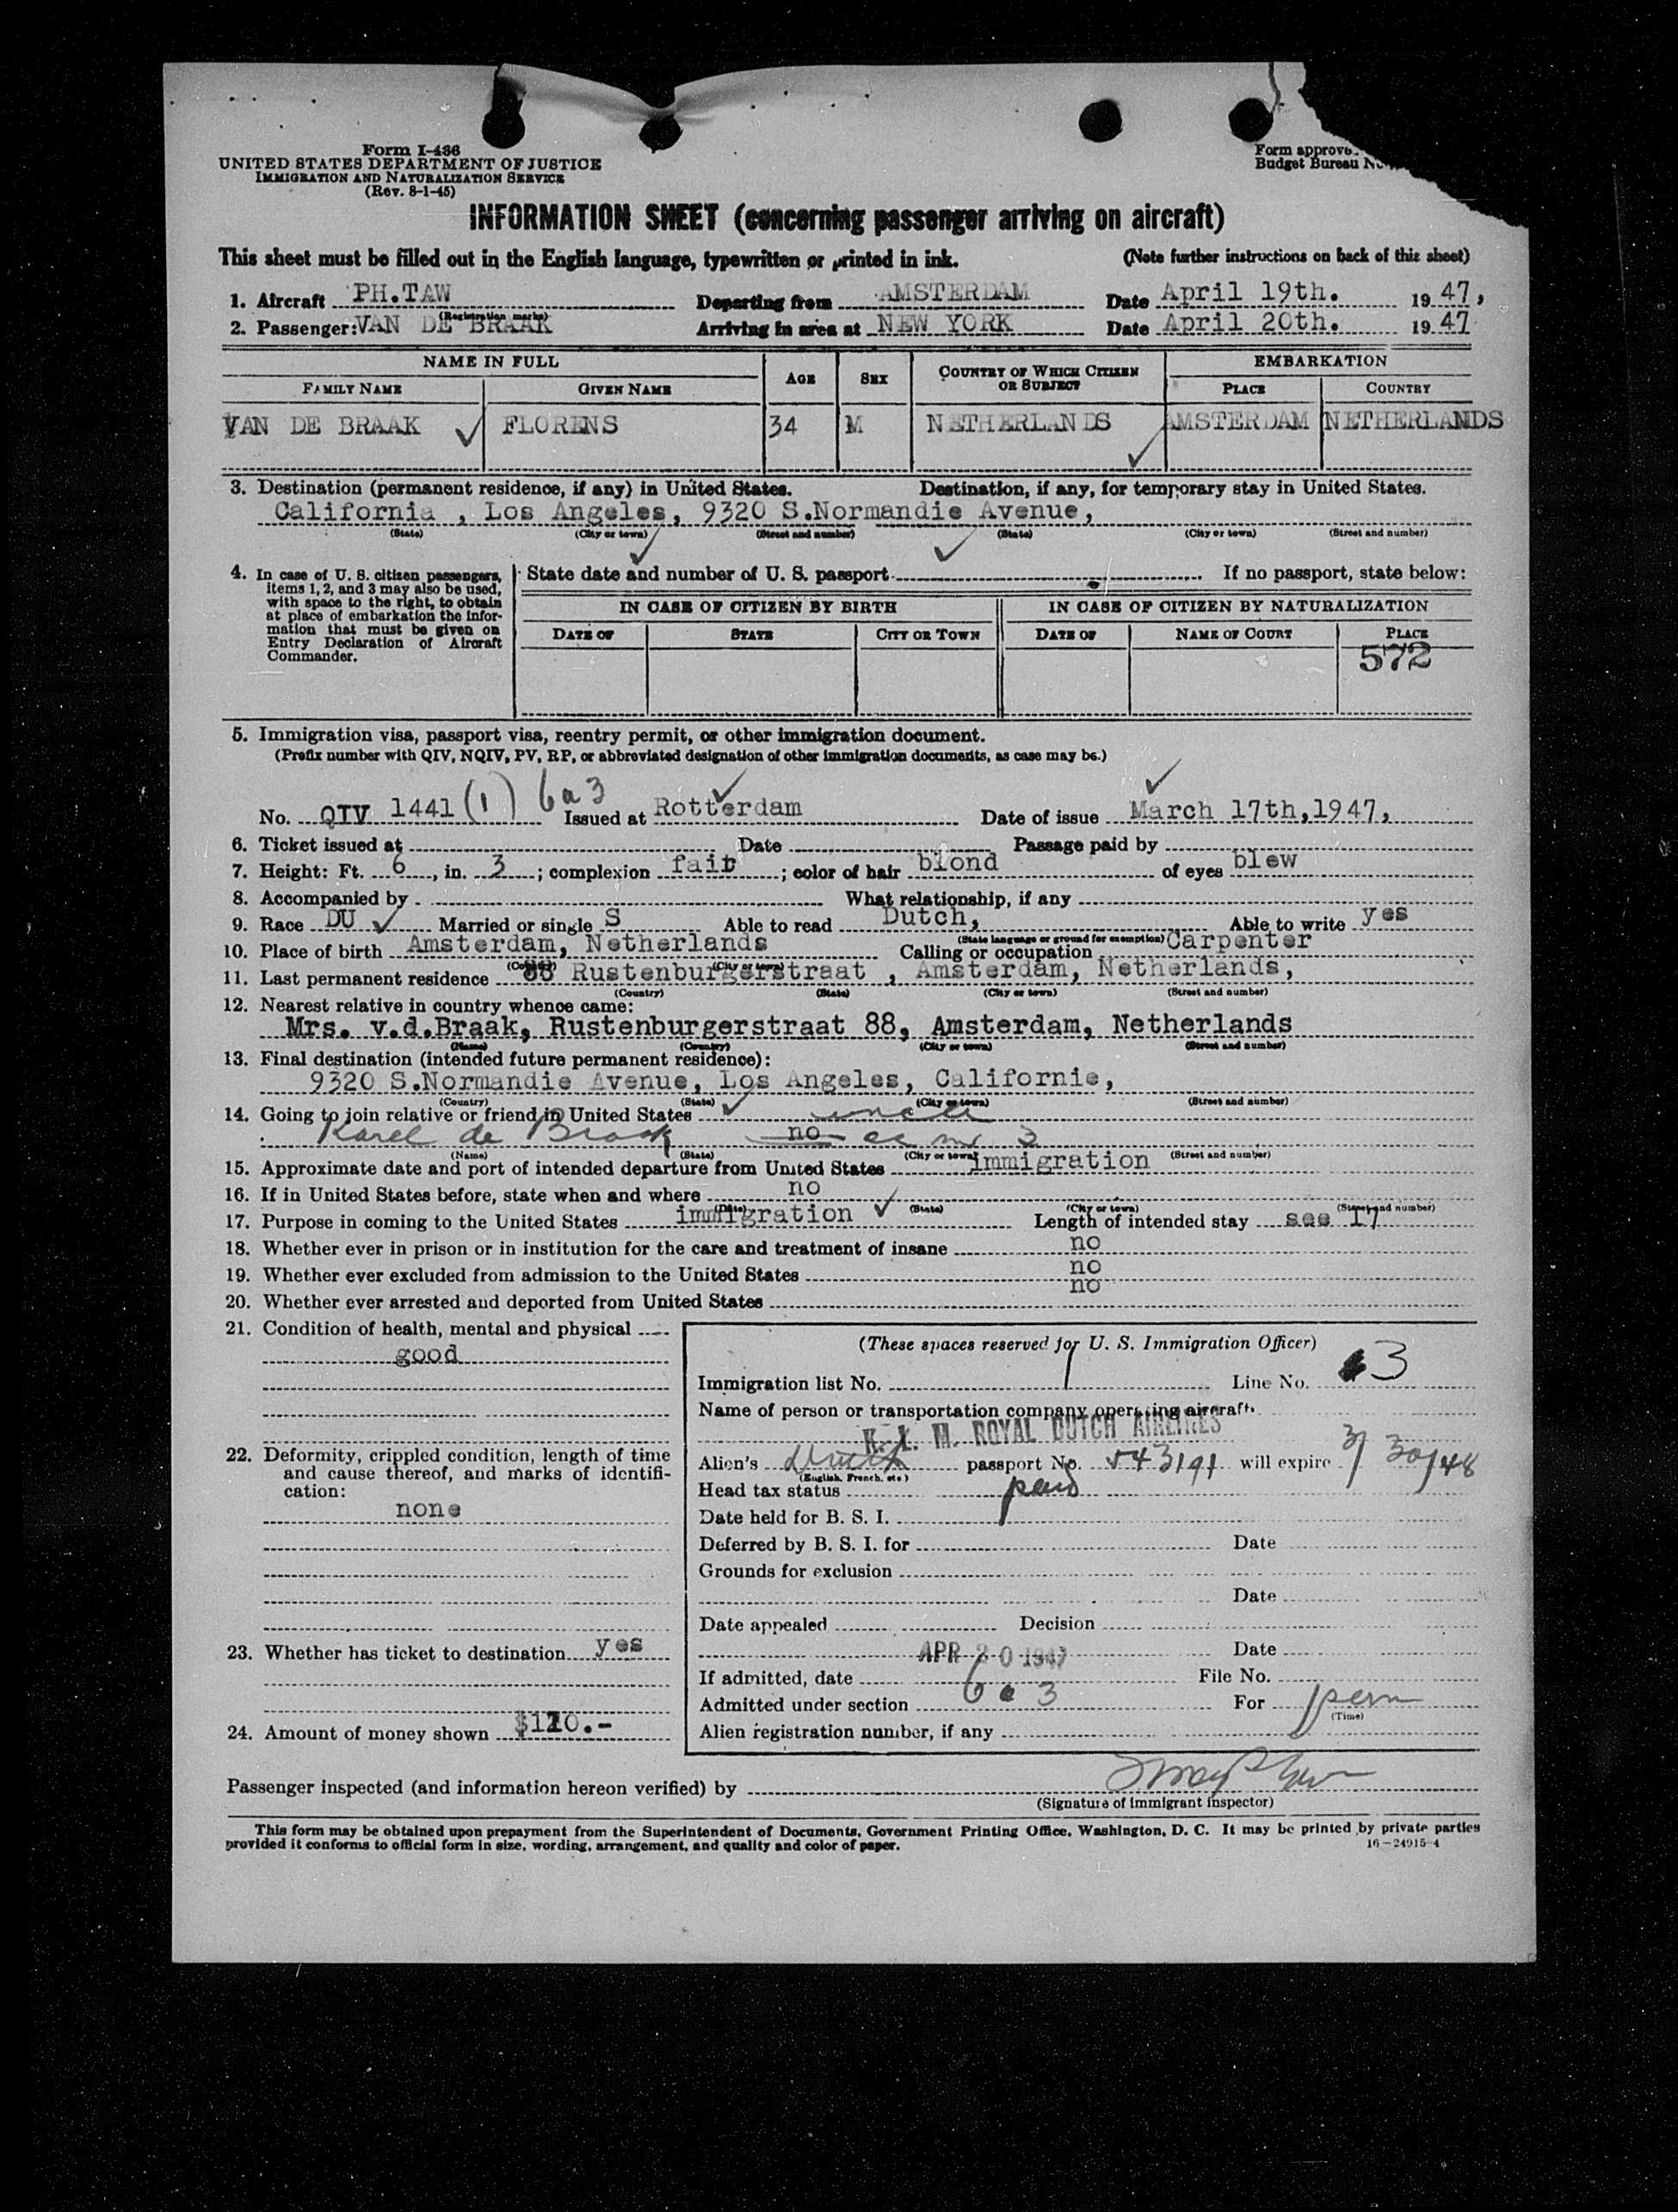 Form I-436
UNITED STATES DEPARTMENT OF JUSTICE
IMMIGRATION AND NATURALIZATION SERVICE
(Rev. 8-1-45)
Form approve
Budget Bureau No
INFORMATION SHEET (concerning passenger arriving on aircraft)
This sheet must be filled out in the English language, typewritten or printed in ink. (Note further instructions on back of this sheet)
1. Aircraft PH.TAW Departing from AMSTERDAM Date April 19th. 19 47,
(Registration marks)
2. Passenger: VAN DE BRAAK Arriving in area at NEW YORK Date April 20th. 19 47
NAME IN FULL AGE SEX COUNTRY OF WHICH CITIZEN OR SUBJECT EMBARKATION
FAMILY NAME GIVEN NAME PLACE COUNTRY
VAN DE BRAAK ✓ FLORENS 34 M NETHERLANDS ✓ AMSTERDAM NETHERLANDS
3. Destination (permanent residence, if any) in United States. Destination, if any, for temporary stay in United States.
California , Los Angeles, 9320 S.Normandie Avenue,
(State) (City or town) (Street and number) (State) (City or town) (Street and number)
4. In case of U. S. citizen passengers, items 1, 2, and 3 may also be used, with space to the right, to obtain at place of embarkation the information that must be given on Entry Declaration of Aircraft Commander.
State date and number of U. S. passport If no passport, state below:
IN CASE OF CITIZEN BY BIRTH IN CASE OF CITIZEN BY NATURALIZATION
DATE OF STATE CITY OR TOWN DATE OF NAME OF COURT PLACE
572
5. Immigration visa, passport visa, reentry permit, or other immigration document.
(Prefix number with QIV, NQIV, PV, RP, or abbreviated designation of other immigration documents, as case may be.)
No. QIV 1441 (1) 6a3 Issued at Rotterdam Date of issue March 17th,1947,
6. Ticket issued at Date Passage paid by
7. Height: Ft. 6, in. 3; complexion fair; color of hair blond of eyes blew
8. Accompanied by What relationship, if any
9. Race DU ✓ Married or single S Able to read Dutch, Able to write yes
(State language or ground for exemption)
10. Place of birth Amsterdam, Netherlands Calling or occupation Carpenter
(Country) (City or town)
11. Last permanent residence 88 Rustenburgerstraat , Amsterdam, Netherlands,
(Country) (State) (City or town) (Street and number)
12. Nearest relative in country whence came:
Mrs. v.d.Braak, Rustenburgerstraat 88, Amsterdam, Netherlands
(Name) (Country) (City or town) (Street and number)
13. Final destination (intended future permanent residence):
9320 S.Normandie Avenue, Los Angeles, Californie,
(Country) (State) (City or town) (Street and number)
14. Going to join relative or friend in United States uncle
Karel de Braak no as nr 3
(Name) (State) (City or town) (Street and number)
15. Approximate date and port of intended departure from United States immigration
16. If in United States before, state when and where no
(Date) (State) (City or town) (Street and number)
17. Purpose in coming to the United States immigration ✓ Length of intended stay see 17
18. Whether ever in prison or in institution for the care and treatment of insane no
19. Whether ever excluded from admission to the United States no
20. Whether ever arrested and deported from United States no
21. Condition of health, mental and physical
good
22. Deformity, crippled condition, length of time and cause thereof, and marks of identification:
none
23. Whether has ticket to destination yes
24. Amount of money shown $120.-
(These spaces reserved for U. S. Immigration Officer)
Immigration list No. 1 Line No. 3
Name of person or transportation company operating aircraft
K. L. M. ROYAL DUTCH AIRLINES
Alien's Dutch passport No. 543191 will expire 3/30/48
(English, French, etc.)
Head tax status paid
Date held for B. S. I.
Deferred by B. S. I. for Date
Grounds for exclusion
Date
Date appealed Decision
Date
If admitted, date APR 20 1947 File No.
Admitted under section 6 a 3 For perm
(Time)
Alien registration number, if any
Passenger inspected (and information hereon verified) by
(Signature of immigrant inspector)
This form may be obtained upon prepayment from the Superintendent of Documents, Government Printing Office, Washington, D. C. It may be printed by private parties
provided it conforms to official form in size, wording, arrangement, and quality and color of paper. 16—24915-4